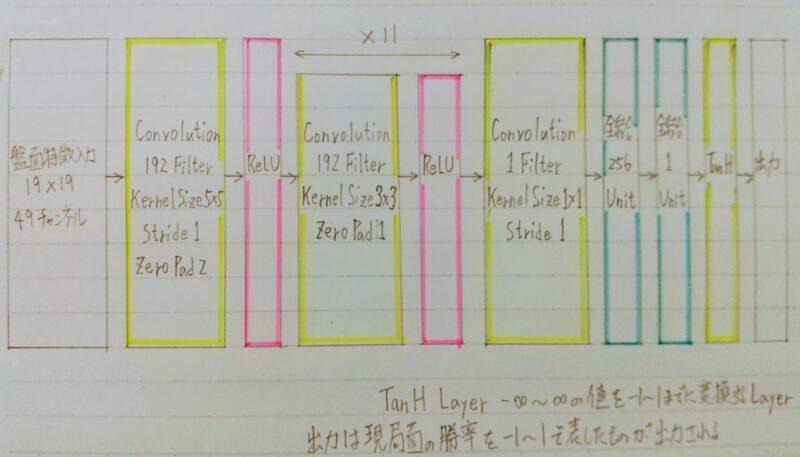 ×11
盤面特徴入力
19×19
49チャンネル
Convolution
192 Filter
Kernel Size5×5
Stride 1
Zero Pad 2
ReLU
Convolution
192 Filter
Kernel Size3×3
Zero Pad 1
ReLU
Convolution
1 Filter
Kernel Size1×1
Stride 1
256
Unit
1
Unit
TanH
出力
TanH Layer -∞~∞の値を-1~1までに変換するLayer
出力は現局面の勝率を-1~1で表したものが出力される